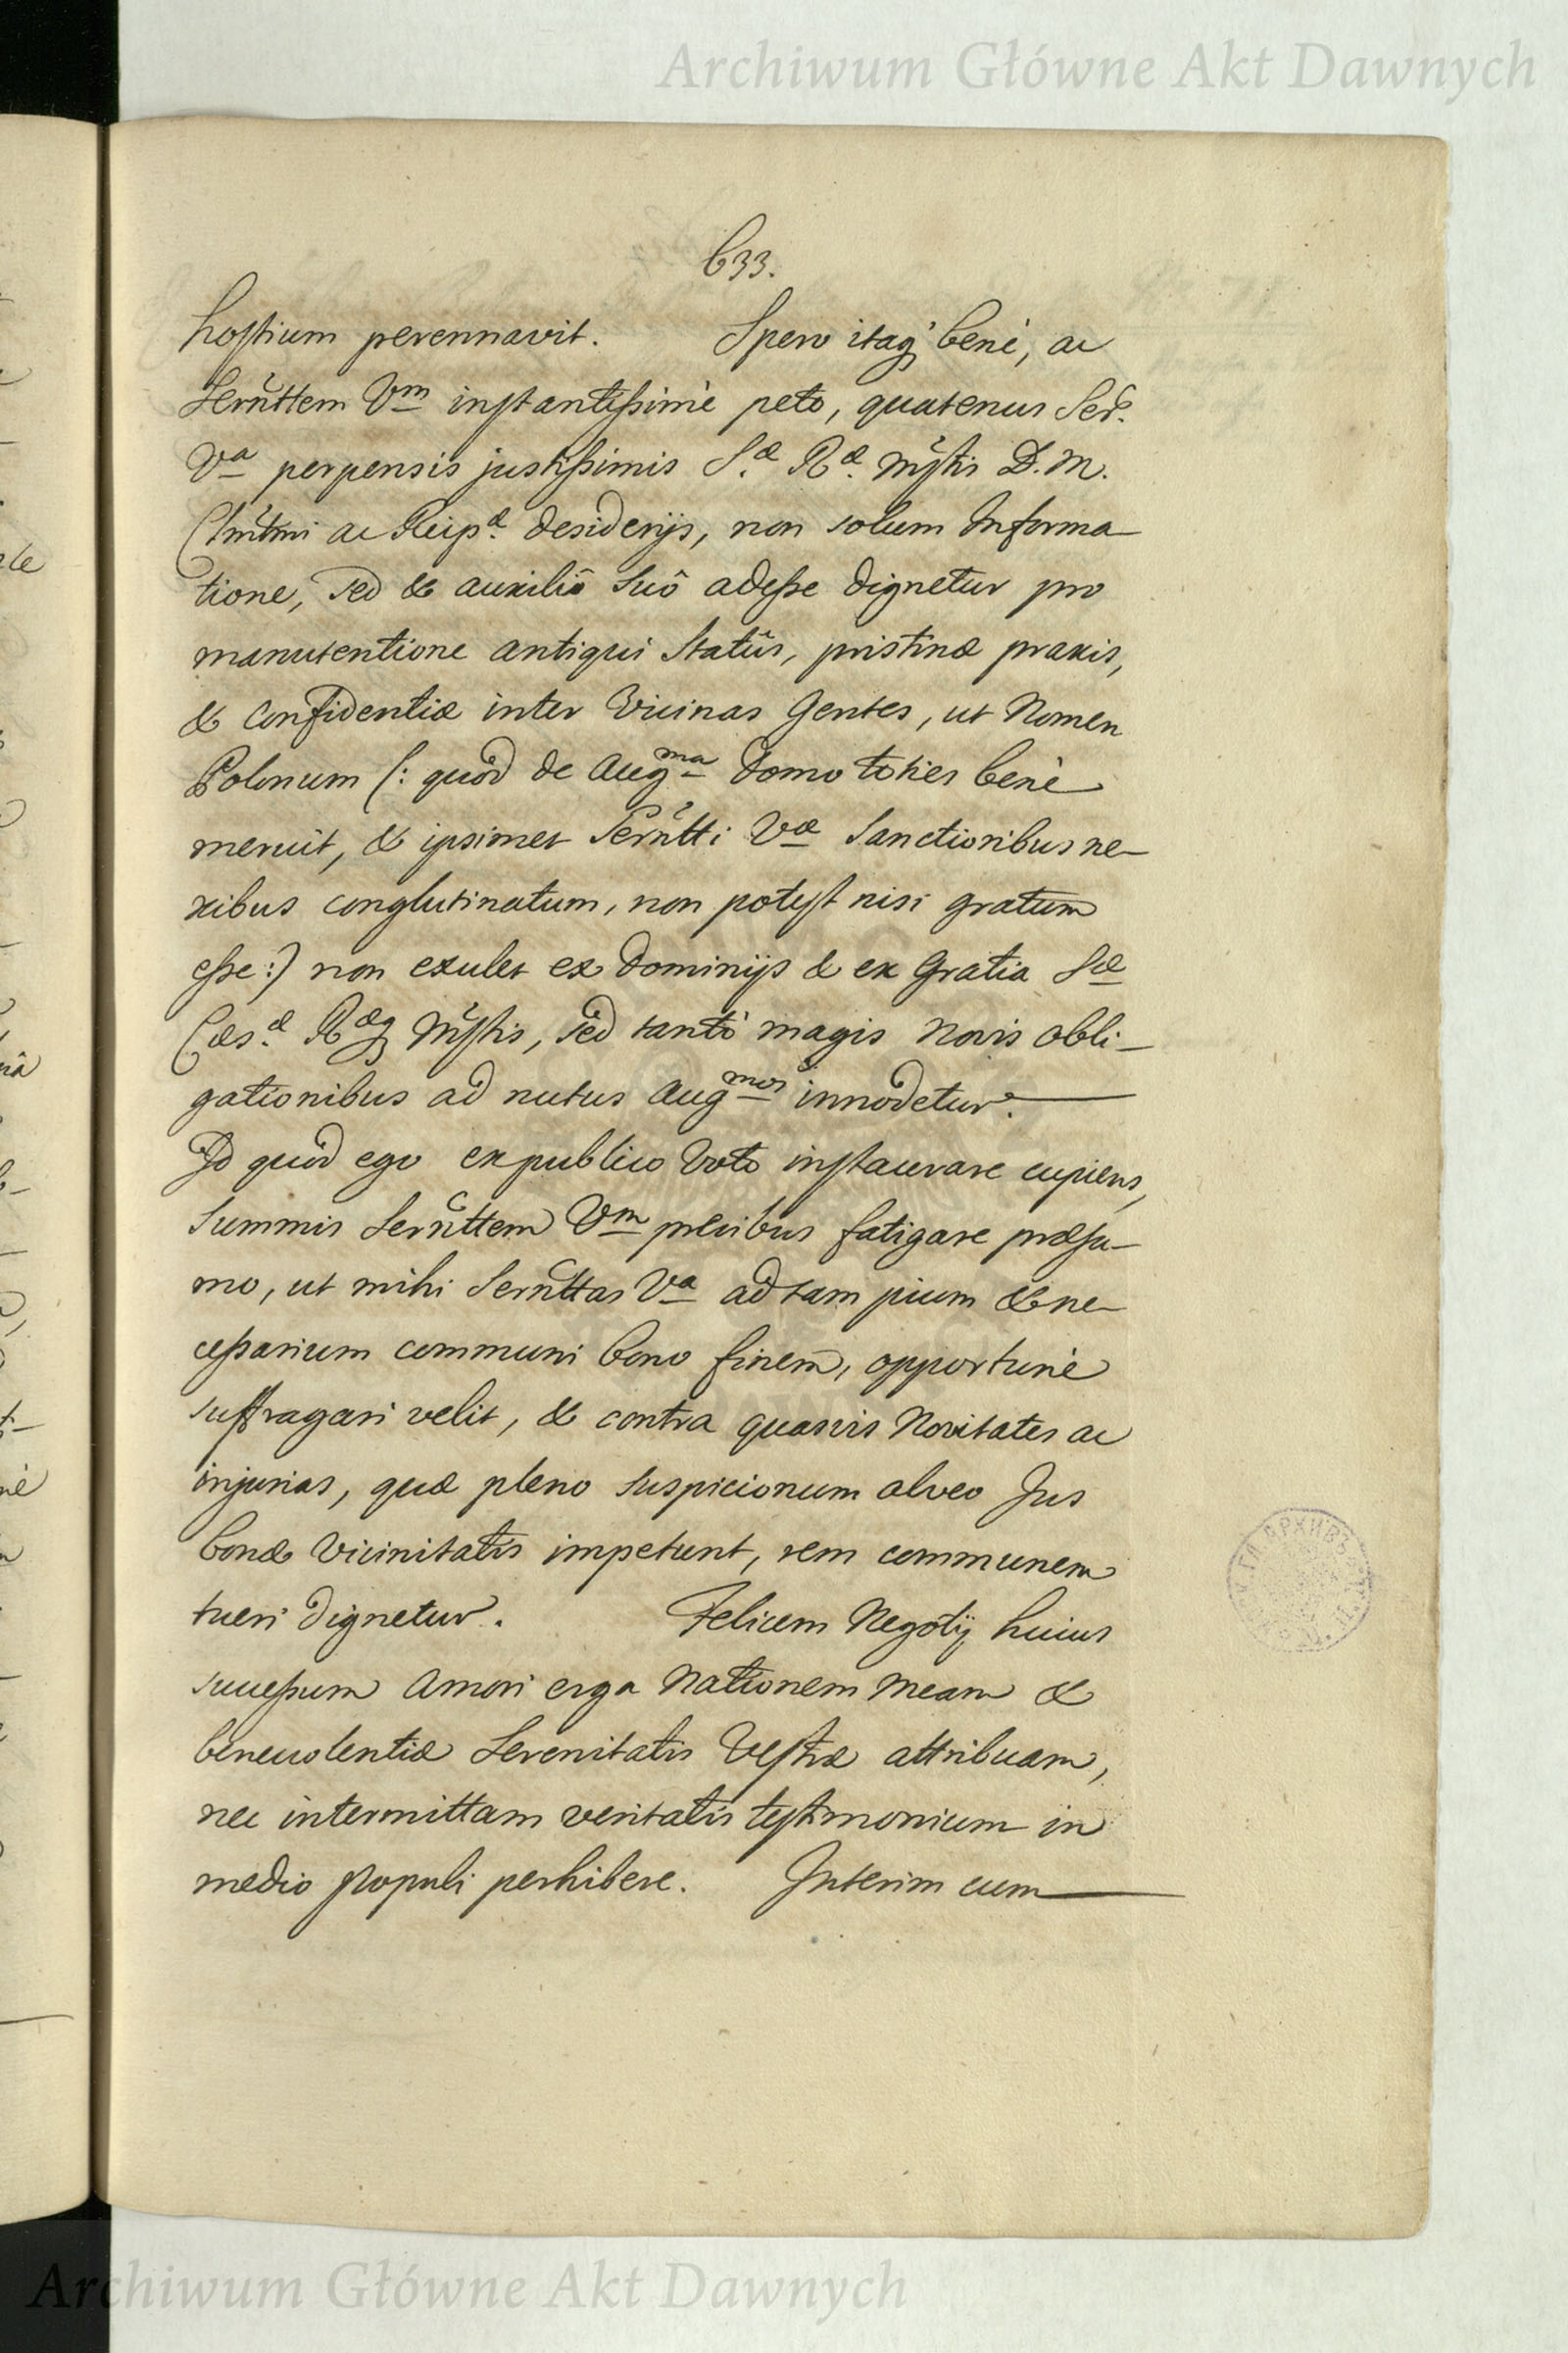 Archiwum Główne Akt Dawnych
633.
hostium perennavit. Spero itaq' benè, ac
Sernttem Vm instantissimè peto, quatenus Ser.
Va perpensis justissimis S.æ R.æ Mstis D. M.
Clmtmi ac Reip.æ desiderijs, non solum Informa-
tione, sed & auxiliô suô adesse dignetur pro
manutentione antiqui Statûs, pristinæ praxis,
& Confidentiæ inter Vicinas Gentes, ut Nomen
Polonum (: quòd de Augma Domo toties benè
meruit, & ipsimet Sernttti Væ Sanctionibus ne-
xibus conglutinatum, non potest nisi gratum
esse :) non exulet ex Dominijs & ex Gratia Sæ
Cæs.æ Ræq Mstis, sed tantò magis Novis obli-
gationibus ad nutus Augmos innodetur.
Id quòd ego ex publico Voto instaurare cupiens,
Summis Sernttem Vm precibus fatigare præsu-
mo, ut mihi Sernttas Va ad tam pium & ne-
cessarium communi bono finem, opportunè
suffragari velit, & contra quasvis Novitates ac
injurias, quæ pleno suspicionum alveo Jus
bonæ Vicinitatis impetunt, rem communem
tueri dignetur. Felicem Negotij huius
successum Amori erga Nationem Meam &
benevolentiæ Serenitatis Vestræ attribuam,
nec intermittam veritatis testimonium in
medio Populi perhibere. Interim cum
Archiwum Główne Akt Dawnych